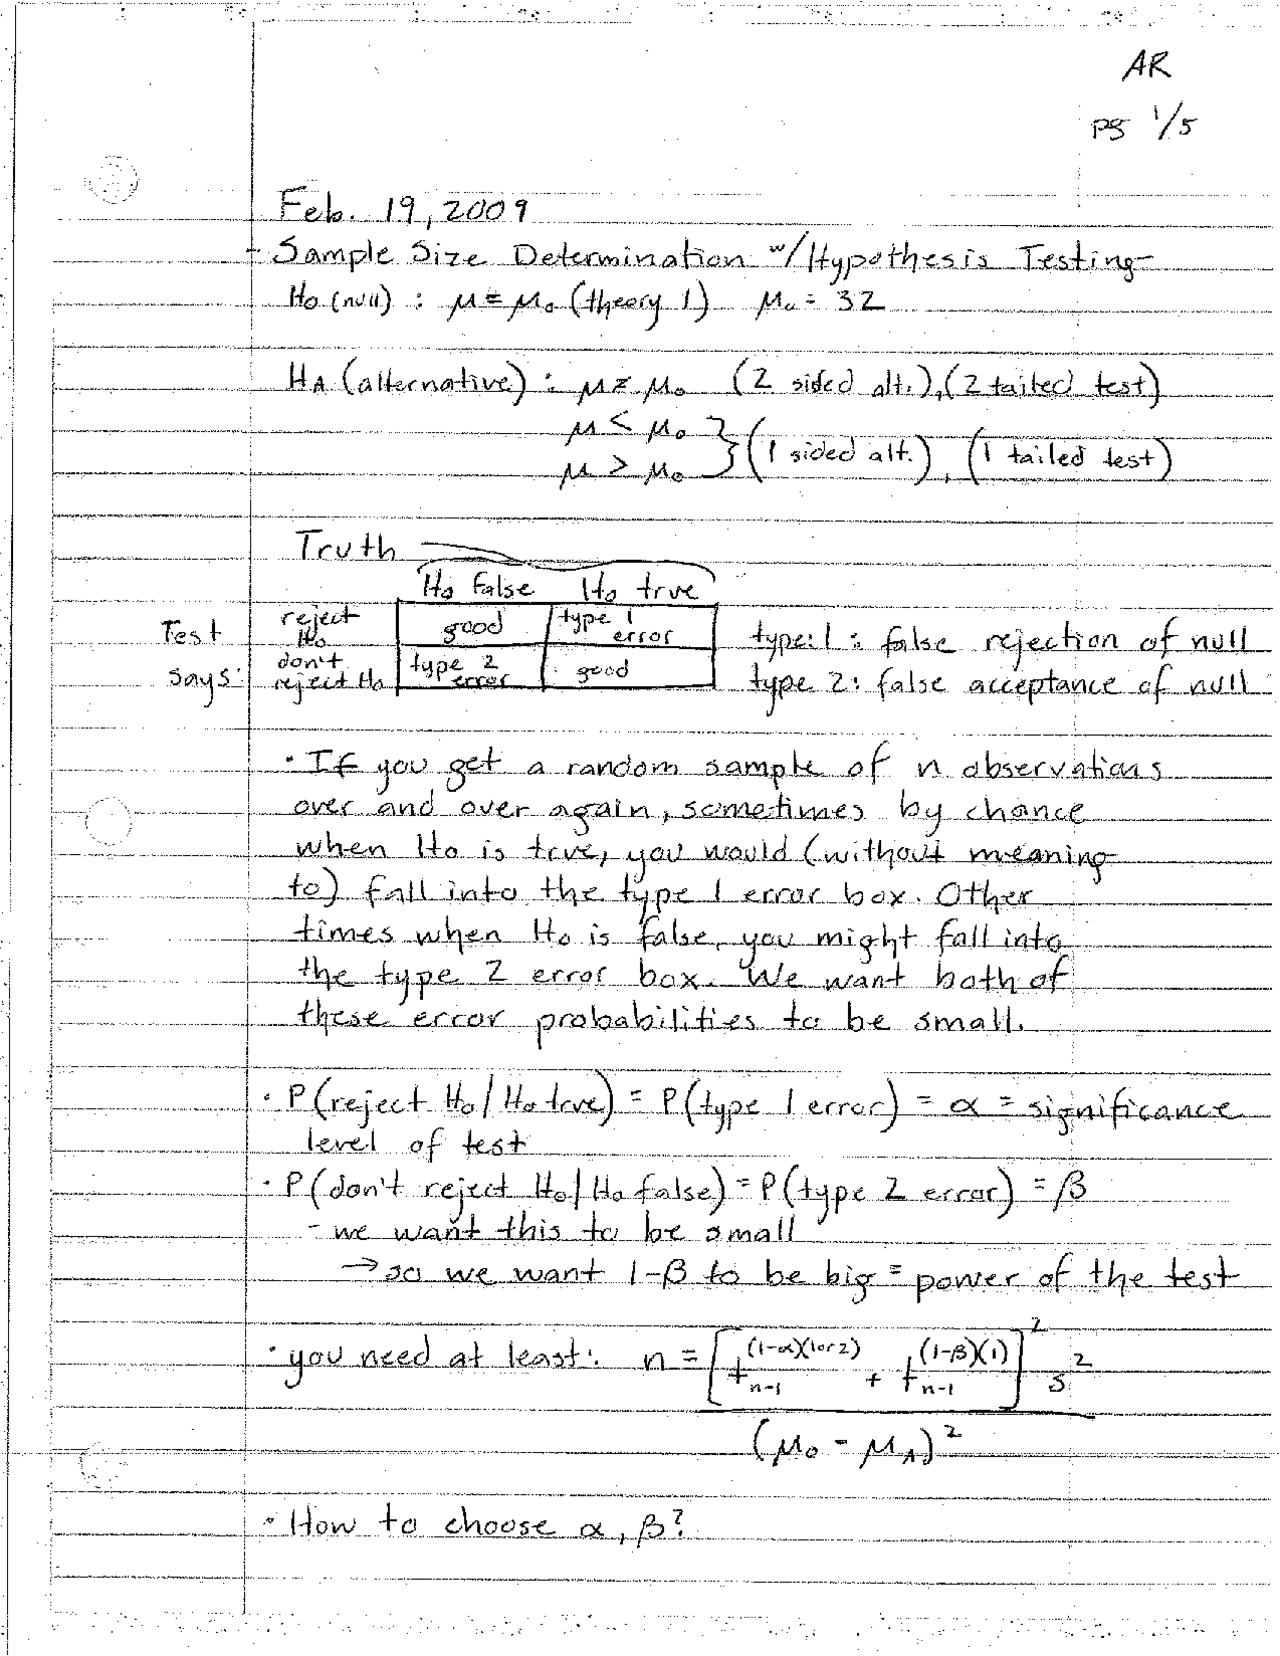 AR
pg 1/5
Feb. 19, 2009
- Sample Size Determination w/Hypothesis Testing
H₀ (null) : μ = μ₀ (theory 1) μ₀ = 32
H_A (alternative) : μ ≠ μ₀ (2 sided alt.), (2 tailed test)
μ < μ₀
μ > μ₀ } (1 sided alt.), (1 tailed test)
Truth
H₀ false H₀ true
Test says:
reject H₀ good type 1 error
don't reject H₀ type 2 error good
type 1: false rejection of null
type 2: false acceptance of null
· If you get a random sample of n observations
over and over again, sometimes by chance
when H₀ is true, you would (without meaning
to) fall into the type 1 error box. Other
times when H₀ is false, you might fall into
the type 2 error box. We want both of
these error probabilities to be small.
· P(reject H₀ / H₀ true) = P(type 1 error) = α = significance
level of test
· P(don't reject H₀ / H₀ false) = P(type 2 error) = β
- we want this to be small
→ so we want 1-β to be big = power of the test
· you need at least: n = [t_{n-1}^{(1-α)(1 or 2)} + t_{n-1}^{(1-β)(1)}]² s²
(μ₀ - μ_A)²
· How to choose α, β?